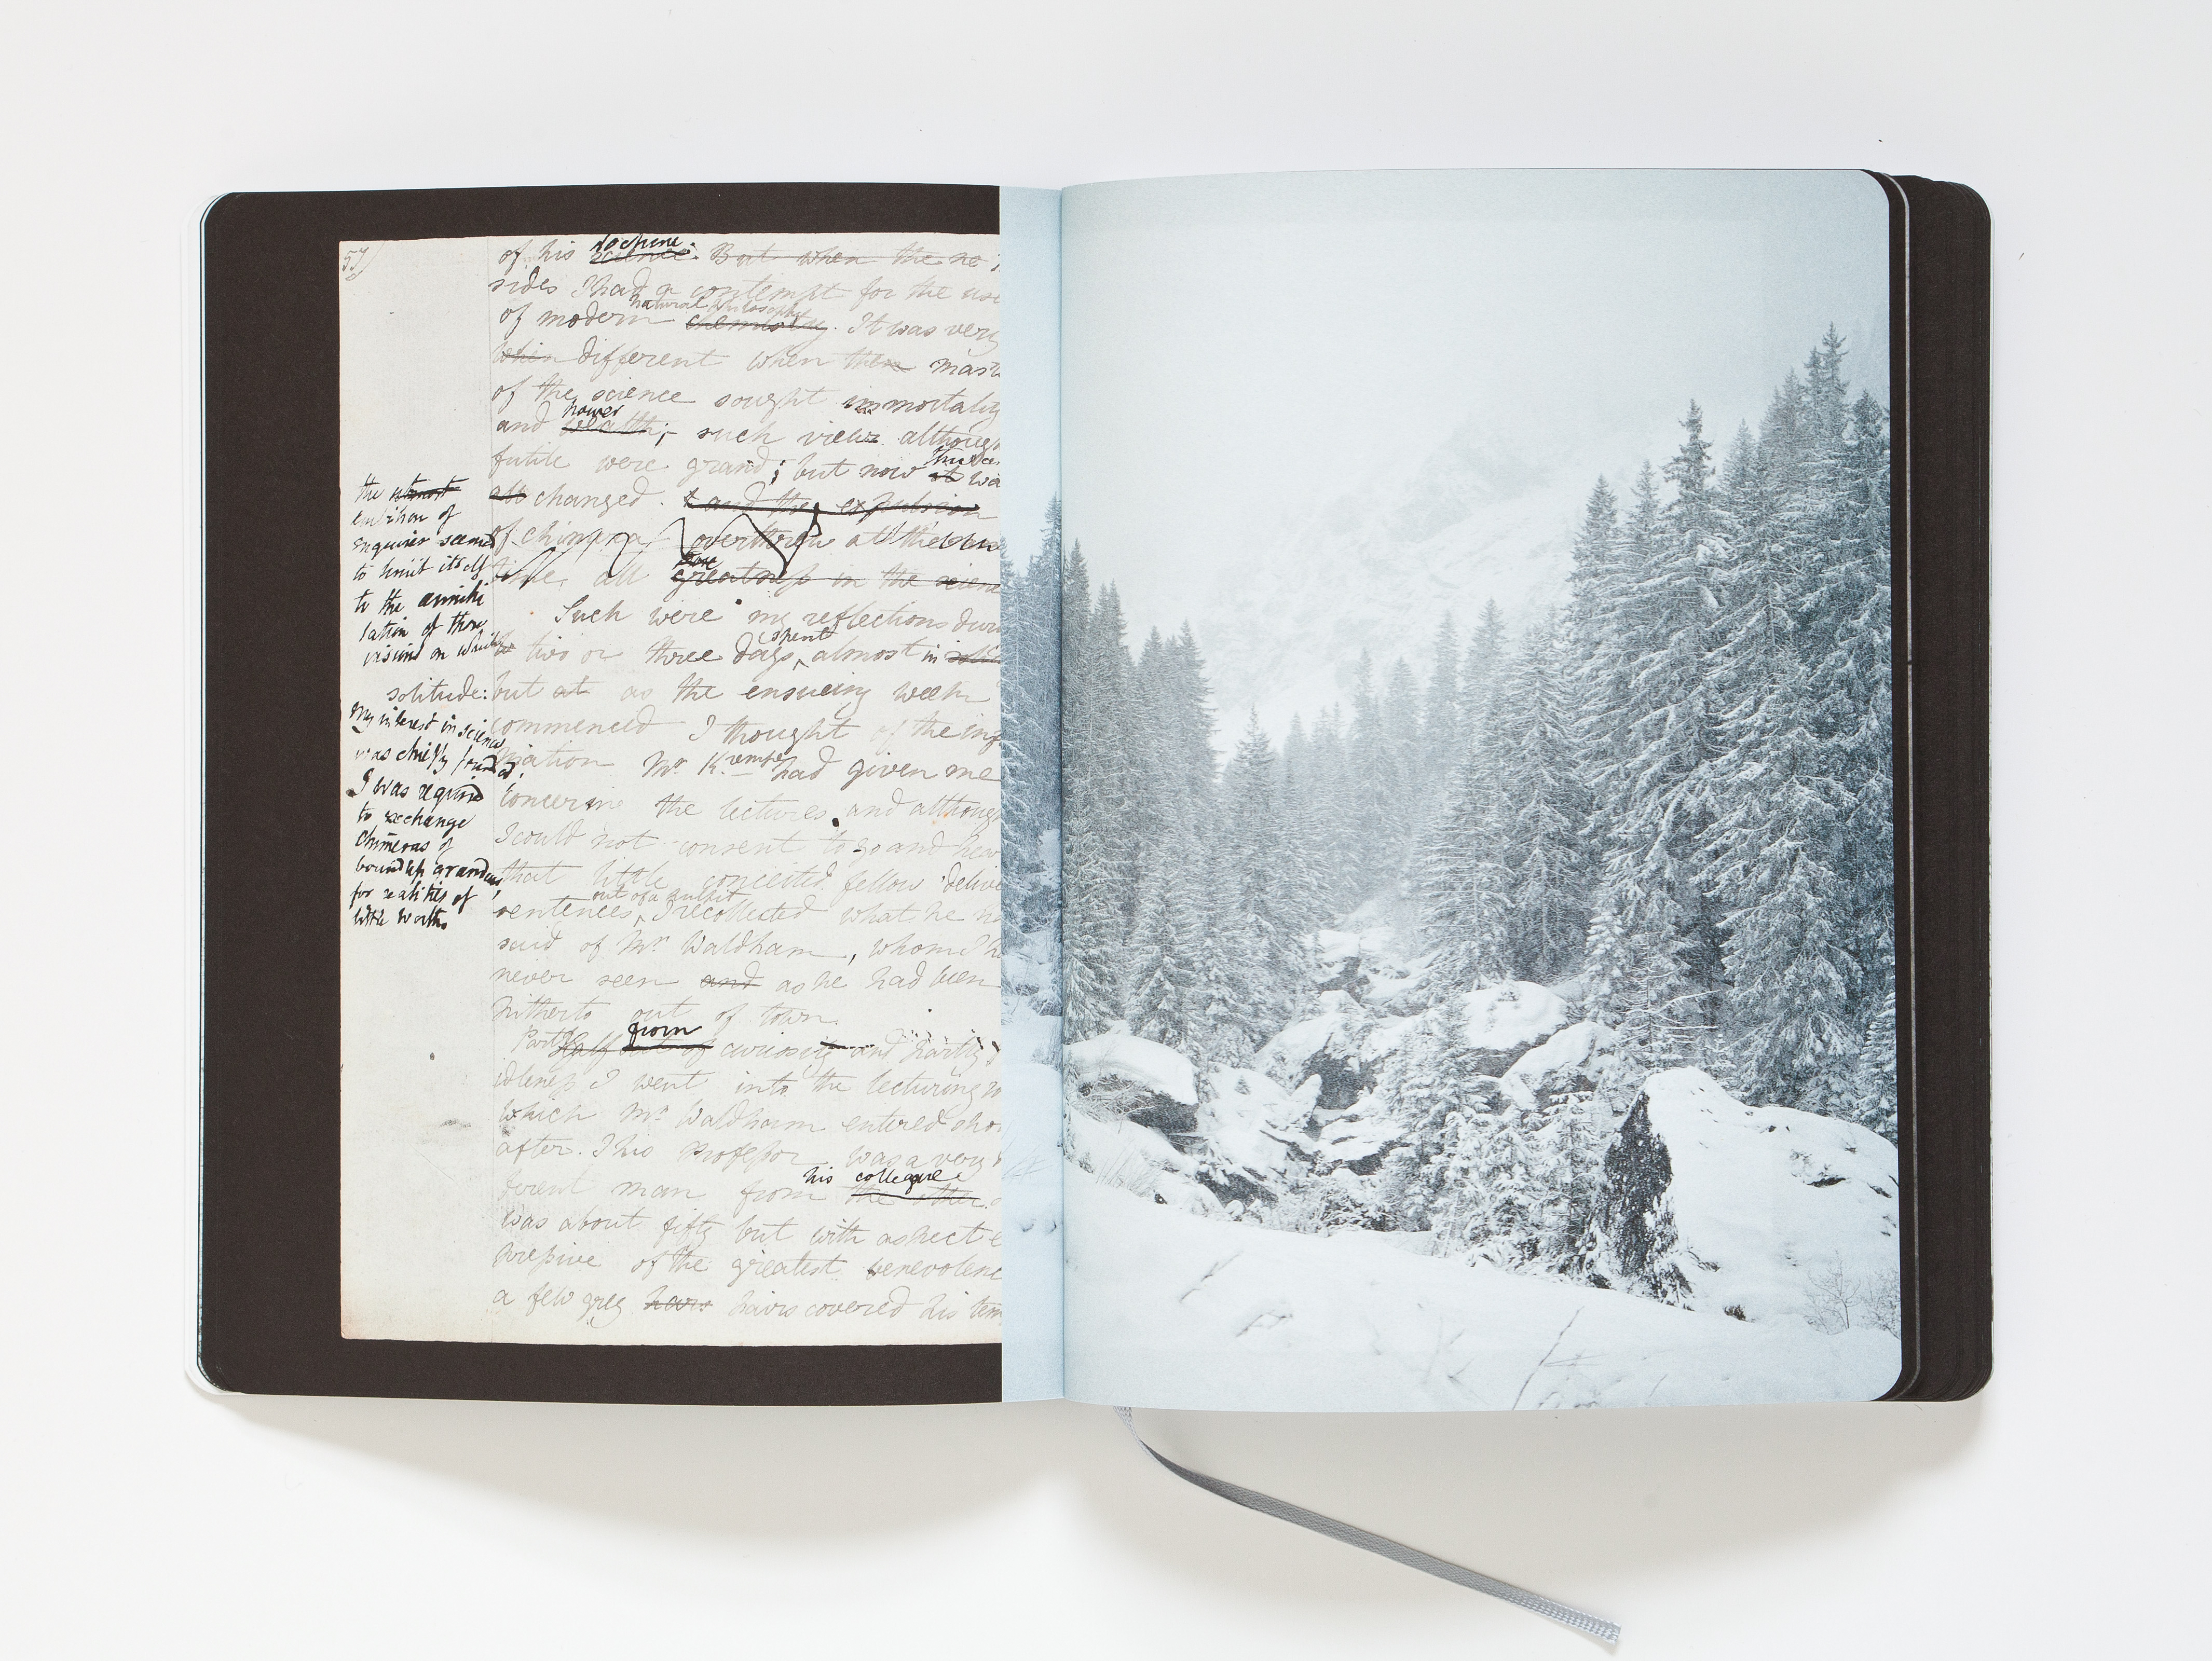 57
doctrine.
of his science. But when the
sides I had a contempt for the use
natural philosophy
of modern chemistry. It was very
when different when then mast
of the science sought immortality
power
and wealth; such views although
futile were grand; but now it wa
all changed. and the expulsion
of chimera overthrew all the
time, all greatness in the scien
Such were my reflections duri
spent
two or three days, almost in
but at as the ensueing week
commenced I thought of the inf
mation Mr. Krempe had given me
concerning the lectures. and although
I could not consent to go and hear
that little conceited fellow delive
out of a pulpit
sentences, I recollected what he h
said of Mr. Waldham, whom I h
never seen and as he had been
hitherto out of town.
from
Partly half out of curiosity and partly
idleness I went into the lecturing r
which Mr Waldham entered sho
after. This Professor was a very
his colleague
ferent man from the other.
was about fifty but with aspect e
pressive of the greatest benevolenc
a few grey hairs hairs covered his tem
the utmost
ambition of
enquirer seemed
to limit itself
to the annihi
lation of those
visions on which
solitude:
my interest in science
was chiefly found
ed.
I was required
to exchange
chimeras of
boundless grandeur
for realities of
little worth.